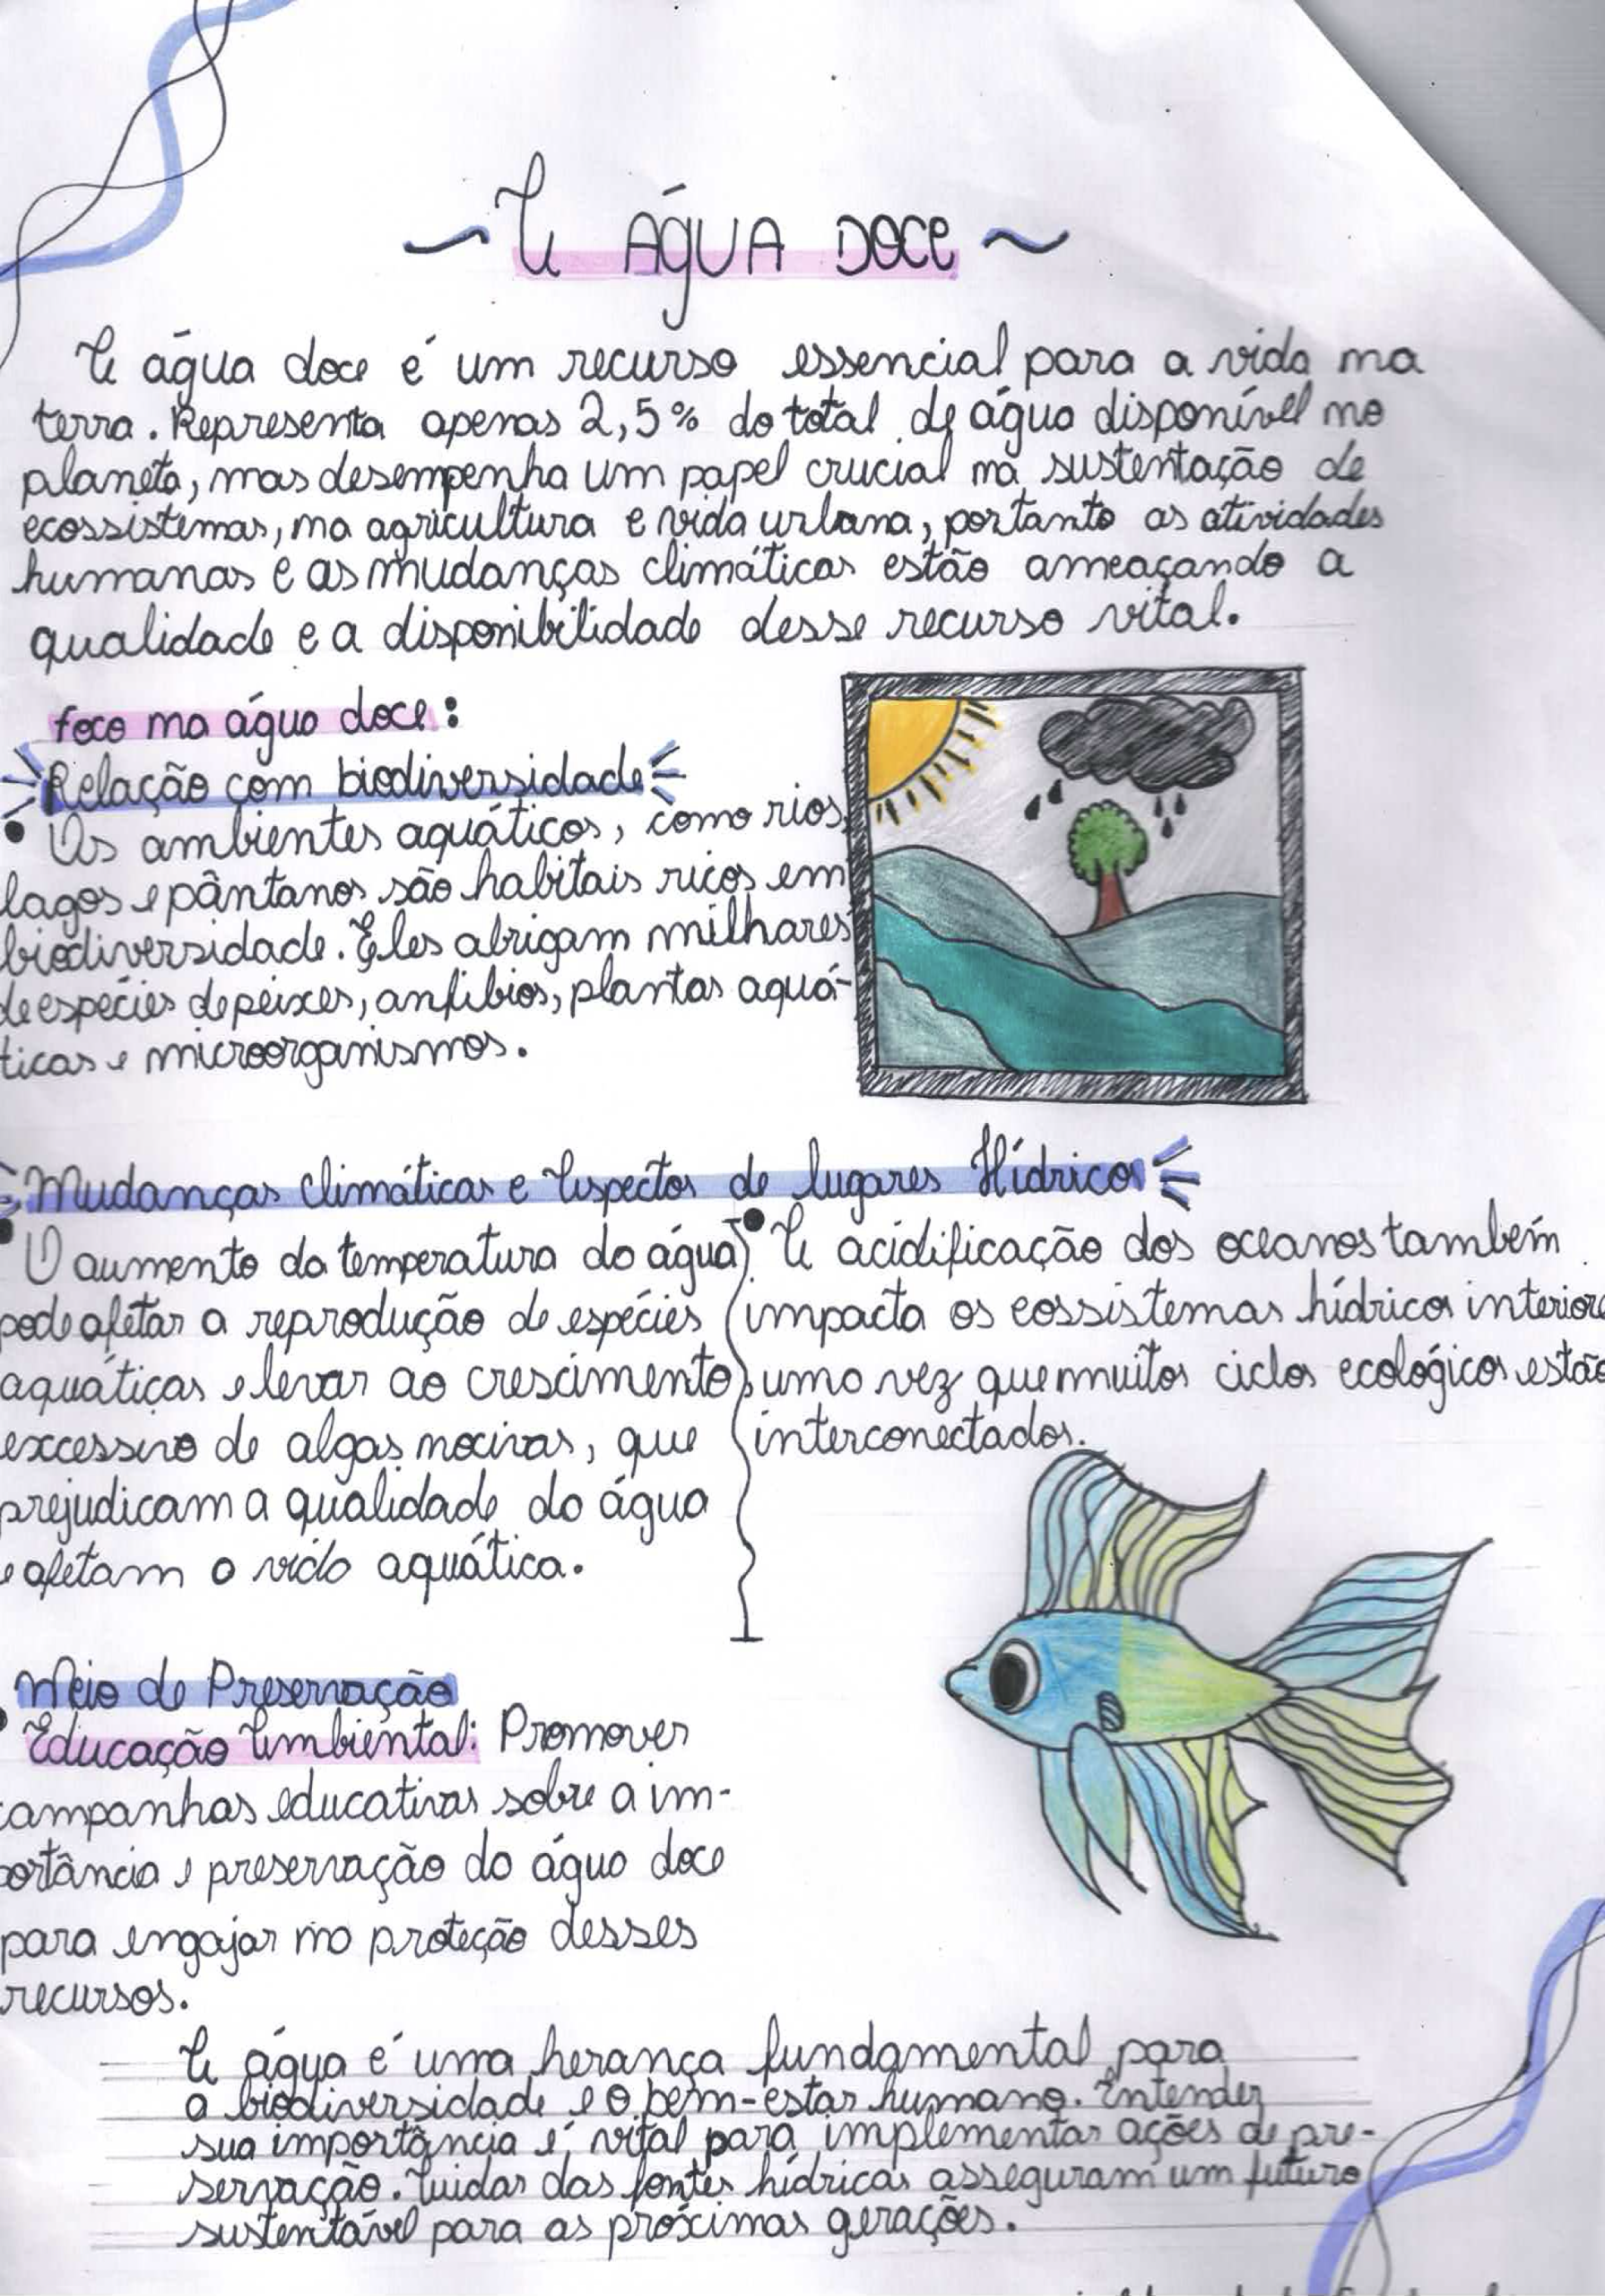 ~ A ÁGUA DOCE ~
A água doce é um recurso essencial para a vida na
terra. Representa apenas 2,5% do total de água disponível no
planeta, mas desempenha um papel crucial na sustentação de
ecossistemas, na agricultura e vida urbana, portanto as atividades
humanas e as mudanças climáticas estão ameaçando a
qualidade e a disponibilidade desse recurso vital.
foco na água doce:
Relação com biodiversidade
• Os ambientes aquáticos, como rios,
lagos e pântanos são habitais ricos em
biodiversidade. Eles abrigam milhares
de espécies de peixes, anfíbios, plantas aquá-
ticas e microorganismos.
Mudanças climáticas e Aspectos de lugares Hídricos
• O aumento da temperatura da água
pode afetar a reprodução de espécies
aquáticas e levar ao crescimento
excessivo de algas nocivas, que
prejudicam a qualidade da água
e afetam a vida aquática.
• A acidificação dos oceanos também
impacta os ecossistemas hídricos interiore
uma vez que muitos ciclos ecológicos estão
interconectados.
Meio de Preservação
• Educação Ambiental: Promover
campanhas educativas sobre a im-
portância e preservação da água doce
para engajar na proteção desses
recursos.
A água é uma herança fundamental para
a biodiversidade e o bem-estar humano. Entender
sua importância é vital para implementar ações de pre-
servação. Cuidar das fontes hídricas asseguram um futuro
sustentável para as próximas gerações.